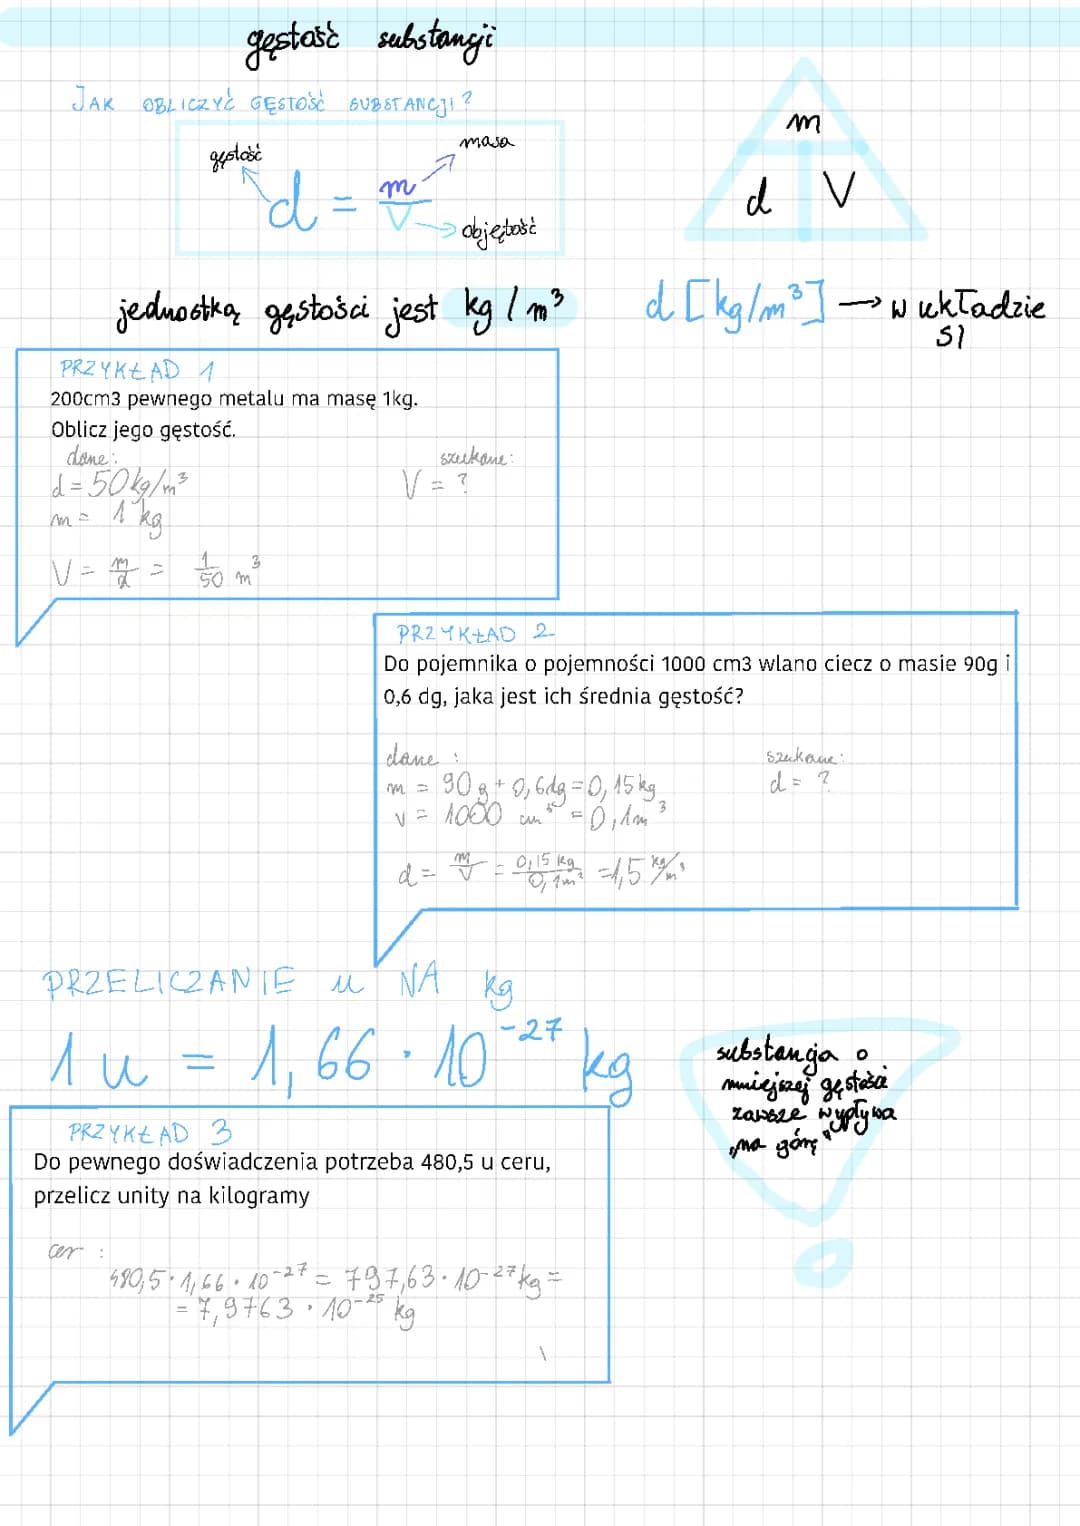 gęstość substancji
JAK OBLICZYĆ GĘSTOŚĆ SUBSTANCJI?
gęstość
masa
d = m/V
objętość
m
d V
jednostką gęstości jest kg/m³
d [kg/m³] → w układzie
SI
PRZYKŁAD 1
200cm3 pewnego metalu ma masę 1kg.
Oblicz jego gęstość.
dane:
szukane:
d = 50kg/m³
V = ?
m = 1 kg
V = m/d = 1/50 m³
PRZYKŁAD 2
Do pojemnika o pojemności 1000 cm3 wlano ciecz o masie 90g i
0,6 dg, jaka jest ich średnia gęstość?
dane :
szukane:
m = 90g + 0,6dg = 0,15kg
d = ?
V = 1000 cm³ = 0,1m³
d = m/V = 0,15 kg/0,1m³ = 1,5 kg/m³
PRZELICZANIE u NA kg
1 u = 1,66 · 10⁻²⁷ kg
substancja o
mniejszej gęstości
zawsze wypływa
„na górę"
PRZYKŁAD 3
Do pewnego doświadczenia potrzeba 480,5 u ceru,
przelicz unity na kilogramy
cer :
480,5 · 1,66 · 10⁻²⁷ = 797,63 · 10⁻²⁷ kg =
= 7,9763 · 10⁻²⁵ kg